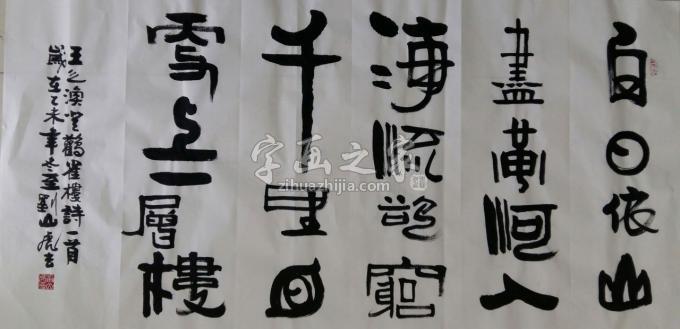 白日依山
盡黃河入
海流欲窮
千里目
更上一層樓
王之渙登鸛雀樓詩一首
歲在乙未年冬至劉山虎书
字画之家
zihuazhijia.com